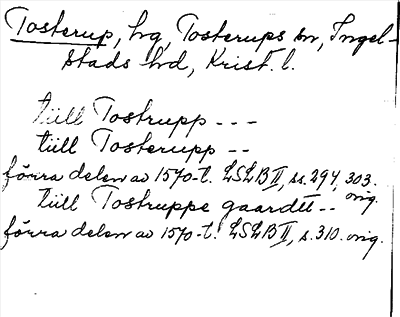 Tosterup, hg, Tosterups sn, Ingel-
stads hd, Krist. l.
tüll Tostrupp - - -
tüll Tosterupp - -
förra delen av 1570-t. LSLB II, ss. 294, 303.
orig.
tüll Tostruppe gaardtt - -
förra delen av 1570-t. LSLB II, s. 310. orig.